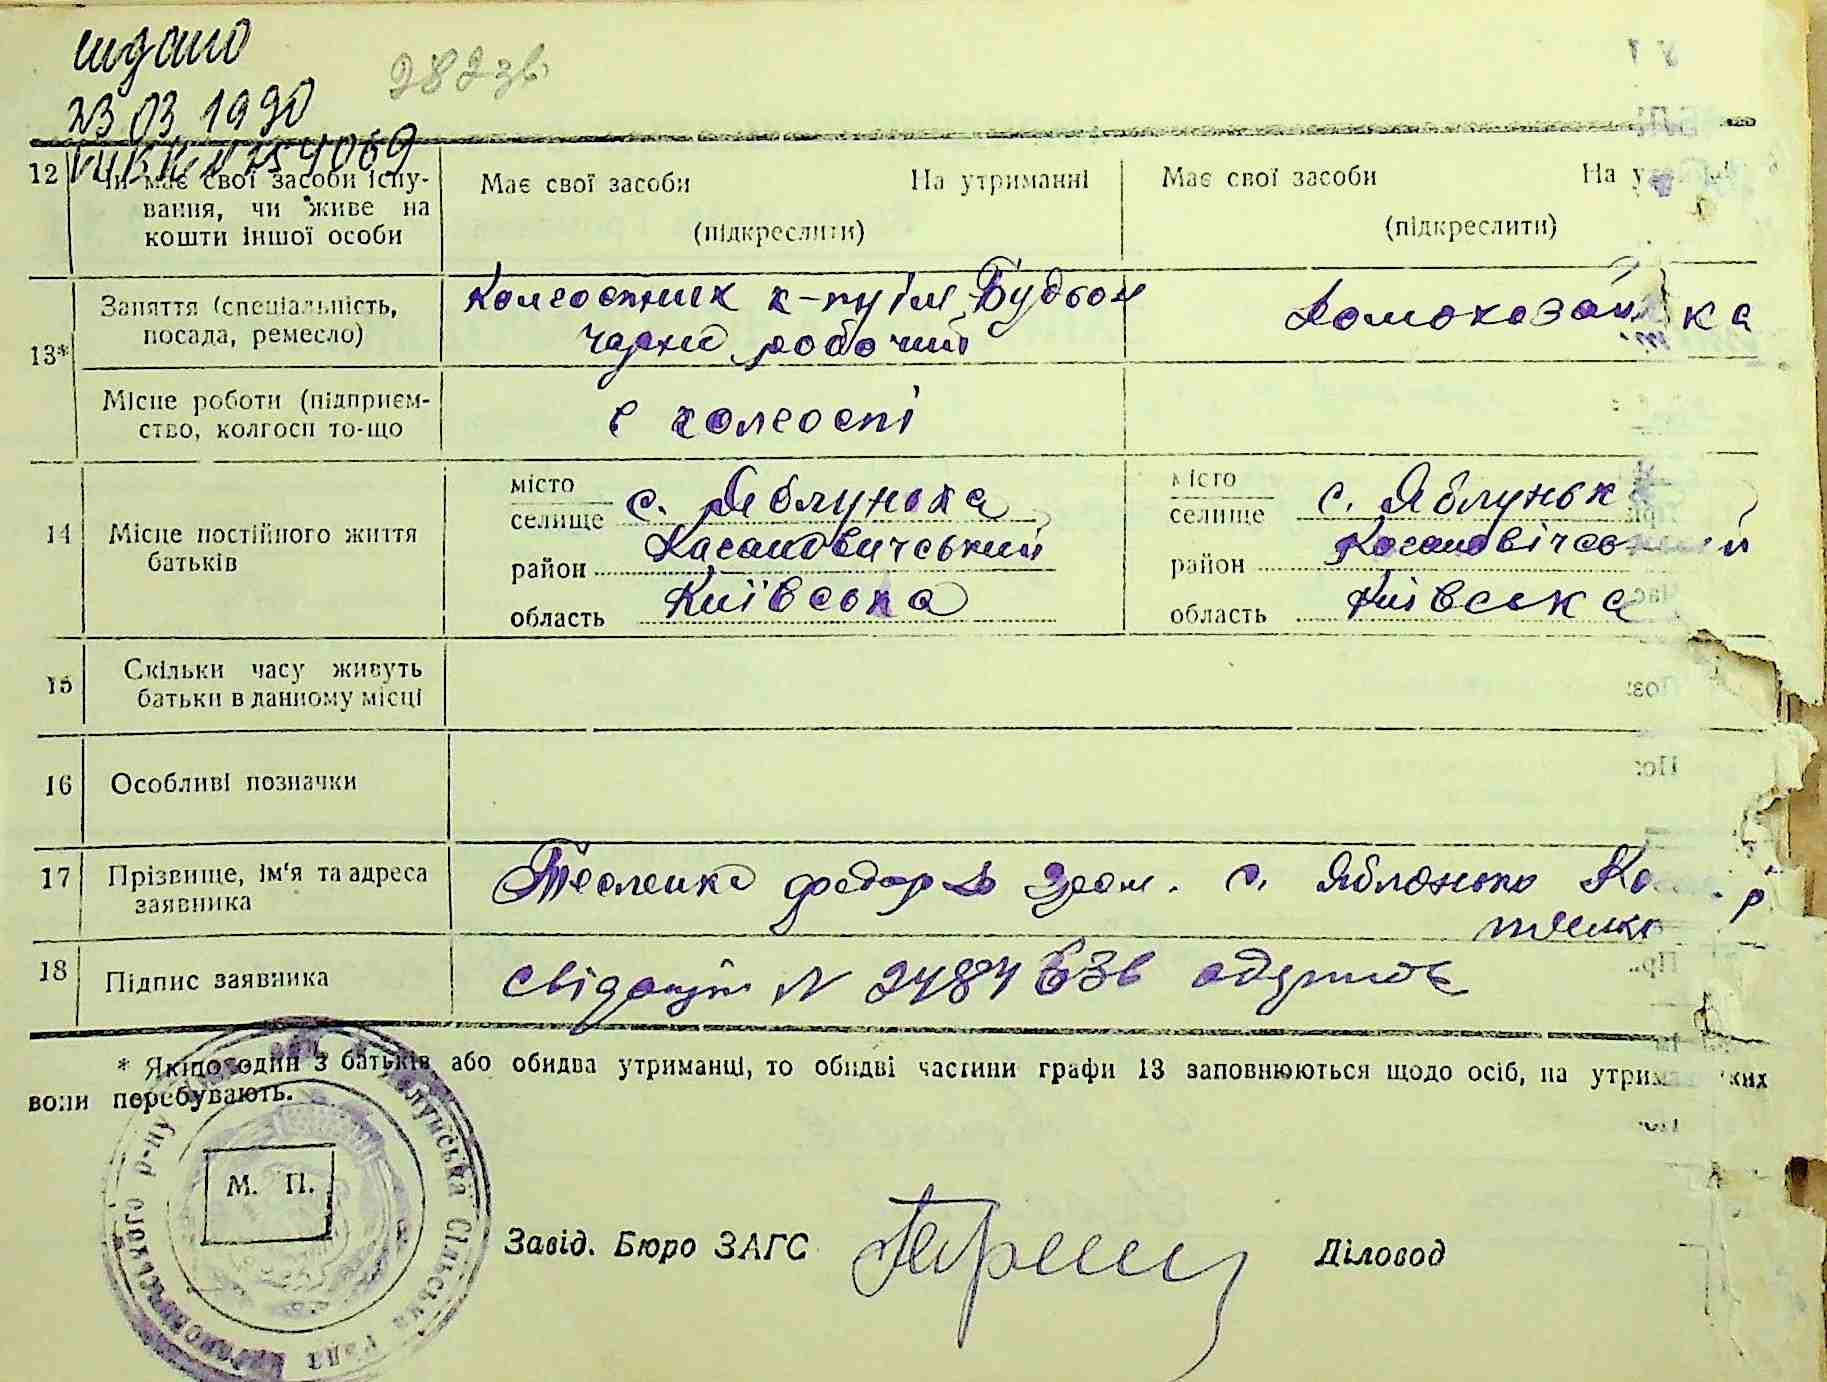 видано
23 03 1990
282 зв
12
Чи має свої засоби існу-
вання, чи живе на
кошти іншої особи
Має свої засоби На утриманні
(підкреслити)
Має свої засоби На
(підкреслити)
13*
Заняття (спеціальність,
посада, ремесло)
Колгоспник к-пу ім Будьон
робочий
Домохазяйка
Місце роботи (підприєм-
ство, колгосп то-що
в колгоспі
14
Місце постійного життя
батьків
місто
селище с. Яблунька
район Кагановичський
область Київська
місто
селище с. Яблуньк
район Кагановічський
область Київська
15
Скільки часу живуть
батьки в данному місці
16
Особливі позначки
17
Прізвище, ім'я та адреса
заявника
Тесленко Федор с. Яблонько
18
Підпис заявника
свідоцтво N
* Якщо один з батьків або обидва утриманці, то обидві частини графи 13 заповнюються щодо осіб, на
вони перебувають.
р-ну
Сільська Рада
М. П.
Завід. Бюро ЗАГС
Діловод